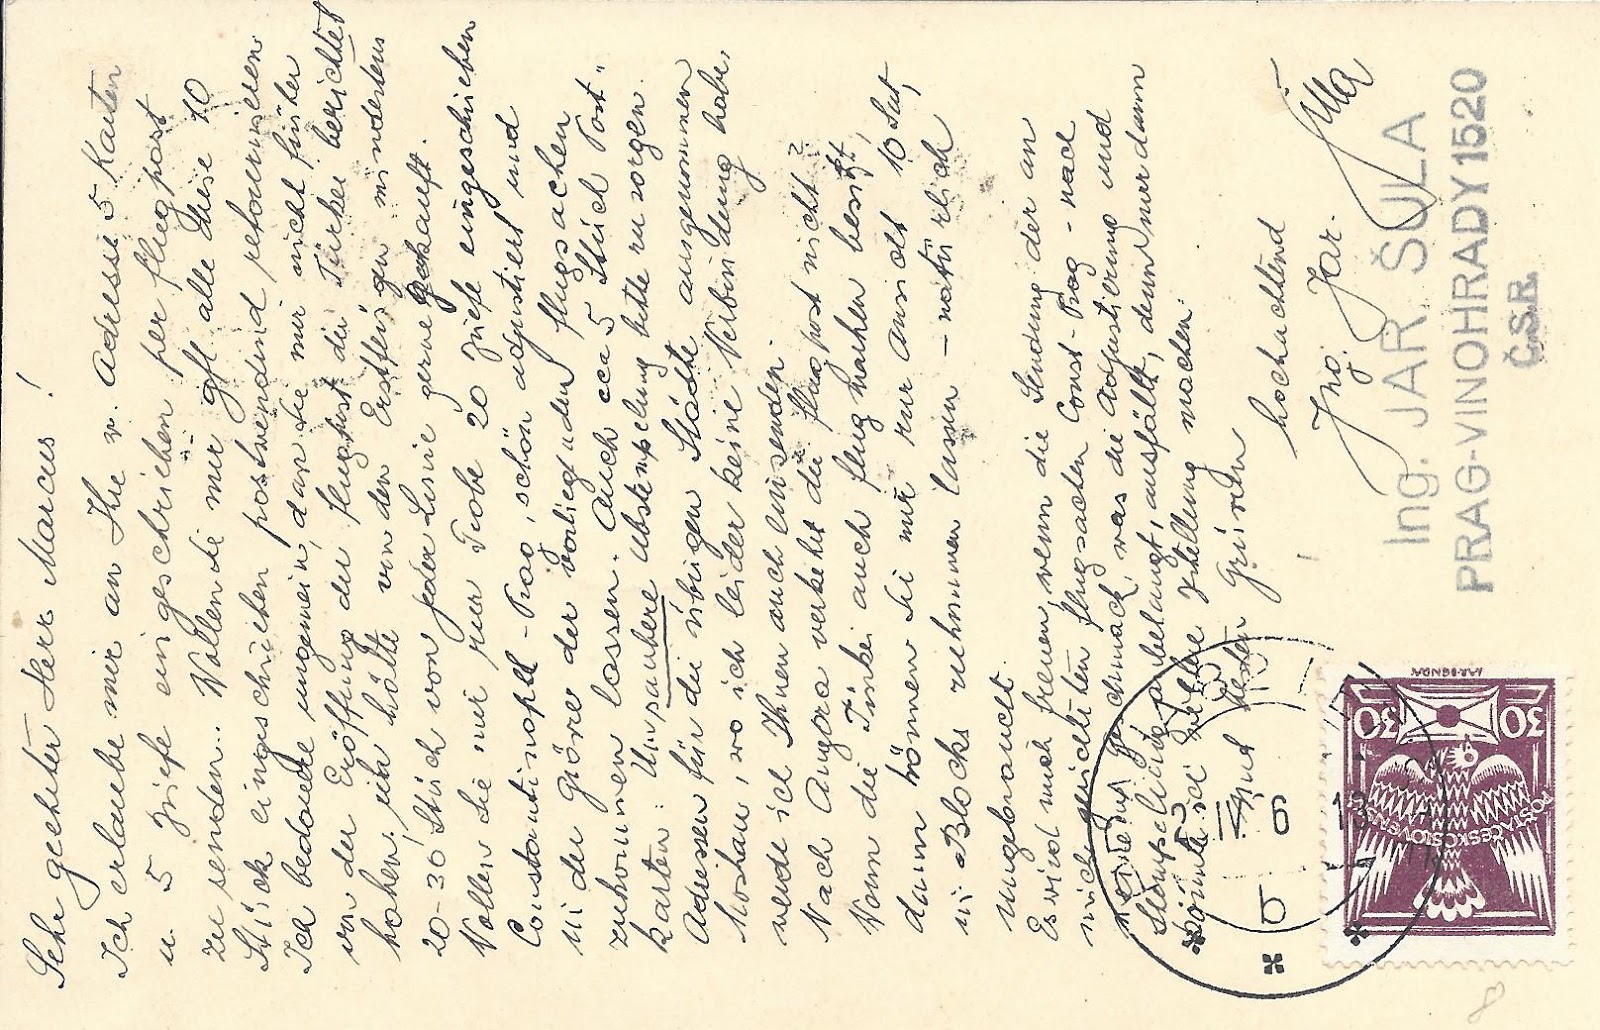 Sehr geehrter Herr Marcus!
Ich erlaube mir an Ihre w. Adresse 5 Karten
u. 5 Briefe eingeschrieben per Flugpost
zu senden. Wollen Sie mir gfl alle diese 10
Stück eingeschrieben postwendend retournieren.
Ich bedaure ungemein, dass Sie mir nicht früher
von der Eröffnung der Flugpost der Türkei berichtet
haben, ich hätte von den Erstflügen mindestens
20-30 Stück von jeder Linie gerne gekauft.
Wollen Sie mir zur Probe 20 Briefe eingeschrieben
Constantinopel - Prag, schön adjustiert und
in der Grösse der vorliegenden Flugsachen
zukommen lassen. Auch cca 5 Stück Post-
karten. Um saubere Abstempelung bitte zu sorgen.
Adressen für die übrigen Städte ausgenommen
Moskau, wo ich leider keine Verbindung habe,
werde ich Ihnen auch einsenden.
Nach Angora verkehrt die Flugpost nicht?
Wenn die Türkei auch Flugmarken besitzt,
dann können Sie mir zur Ansicht 10 Satz
in Blocks zukommen lassen - natürlich
ungebraucht.
Es wird mich freuen, wenn die Sendung der an
mich gerichteten Flugsachen Const-Prag - nach
meinem Geschmack, was die Adjustierung und
Stempelung anbelangt, ausfällt, denn nur dann
könnte ich weitere Bestellung machen.
Mit besten Grüssen
hochachtend
Ing. Jar. Šula
Ing. JAR. ŠULA
PRAG-VINOHRADY 1520
Č.S.R.
30 30
POŠTA ČESKOSLOVENSKÁ
JAR. BENDA
6
13
b
8